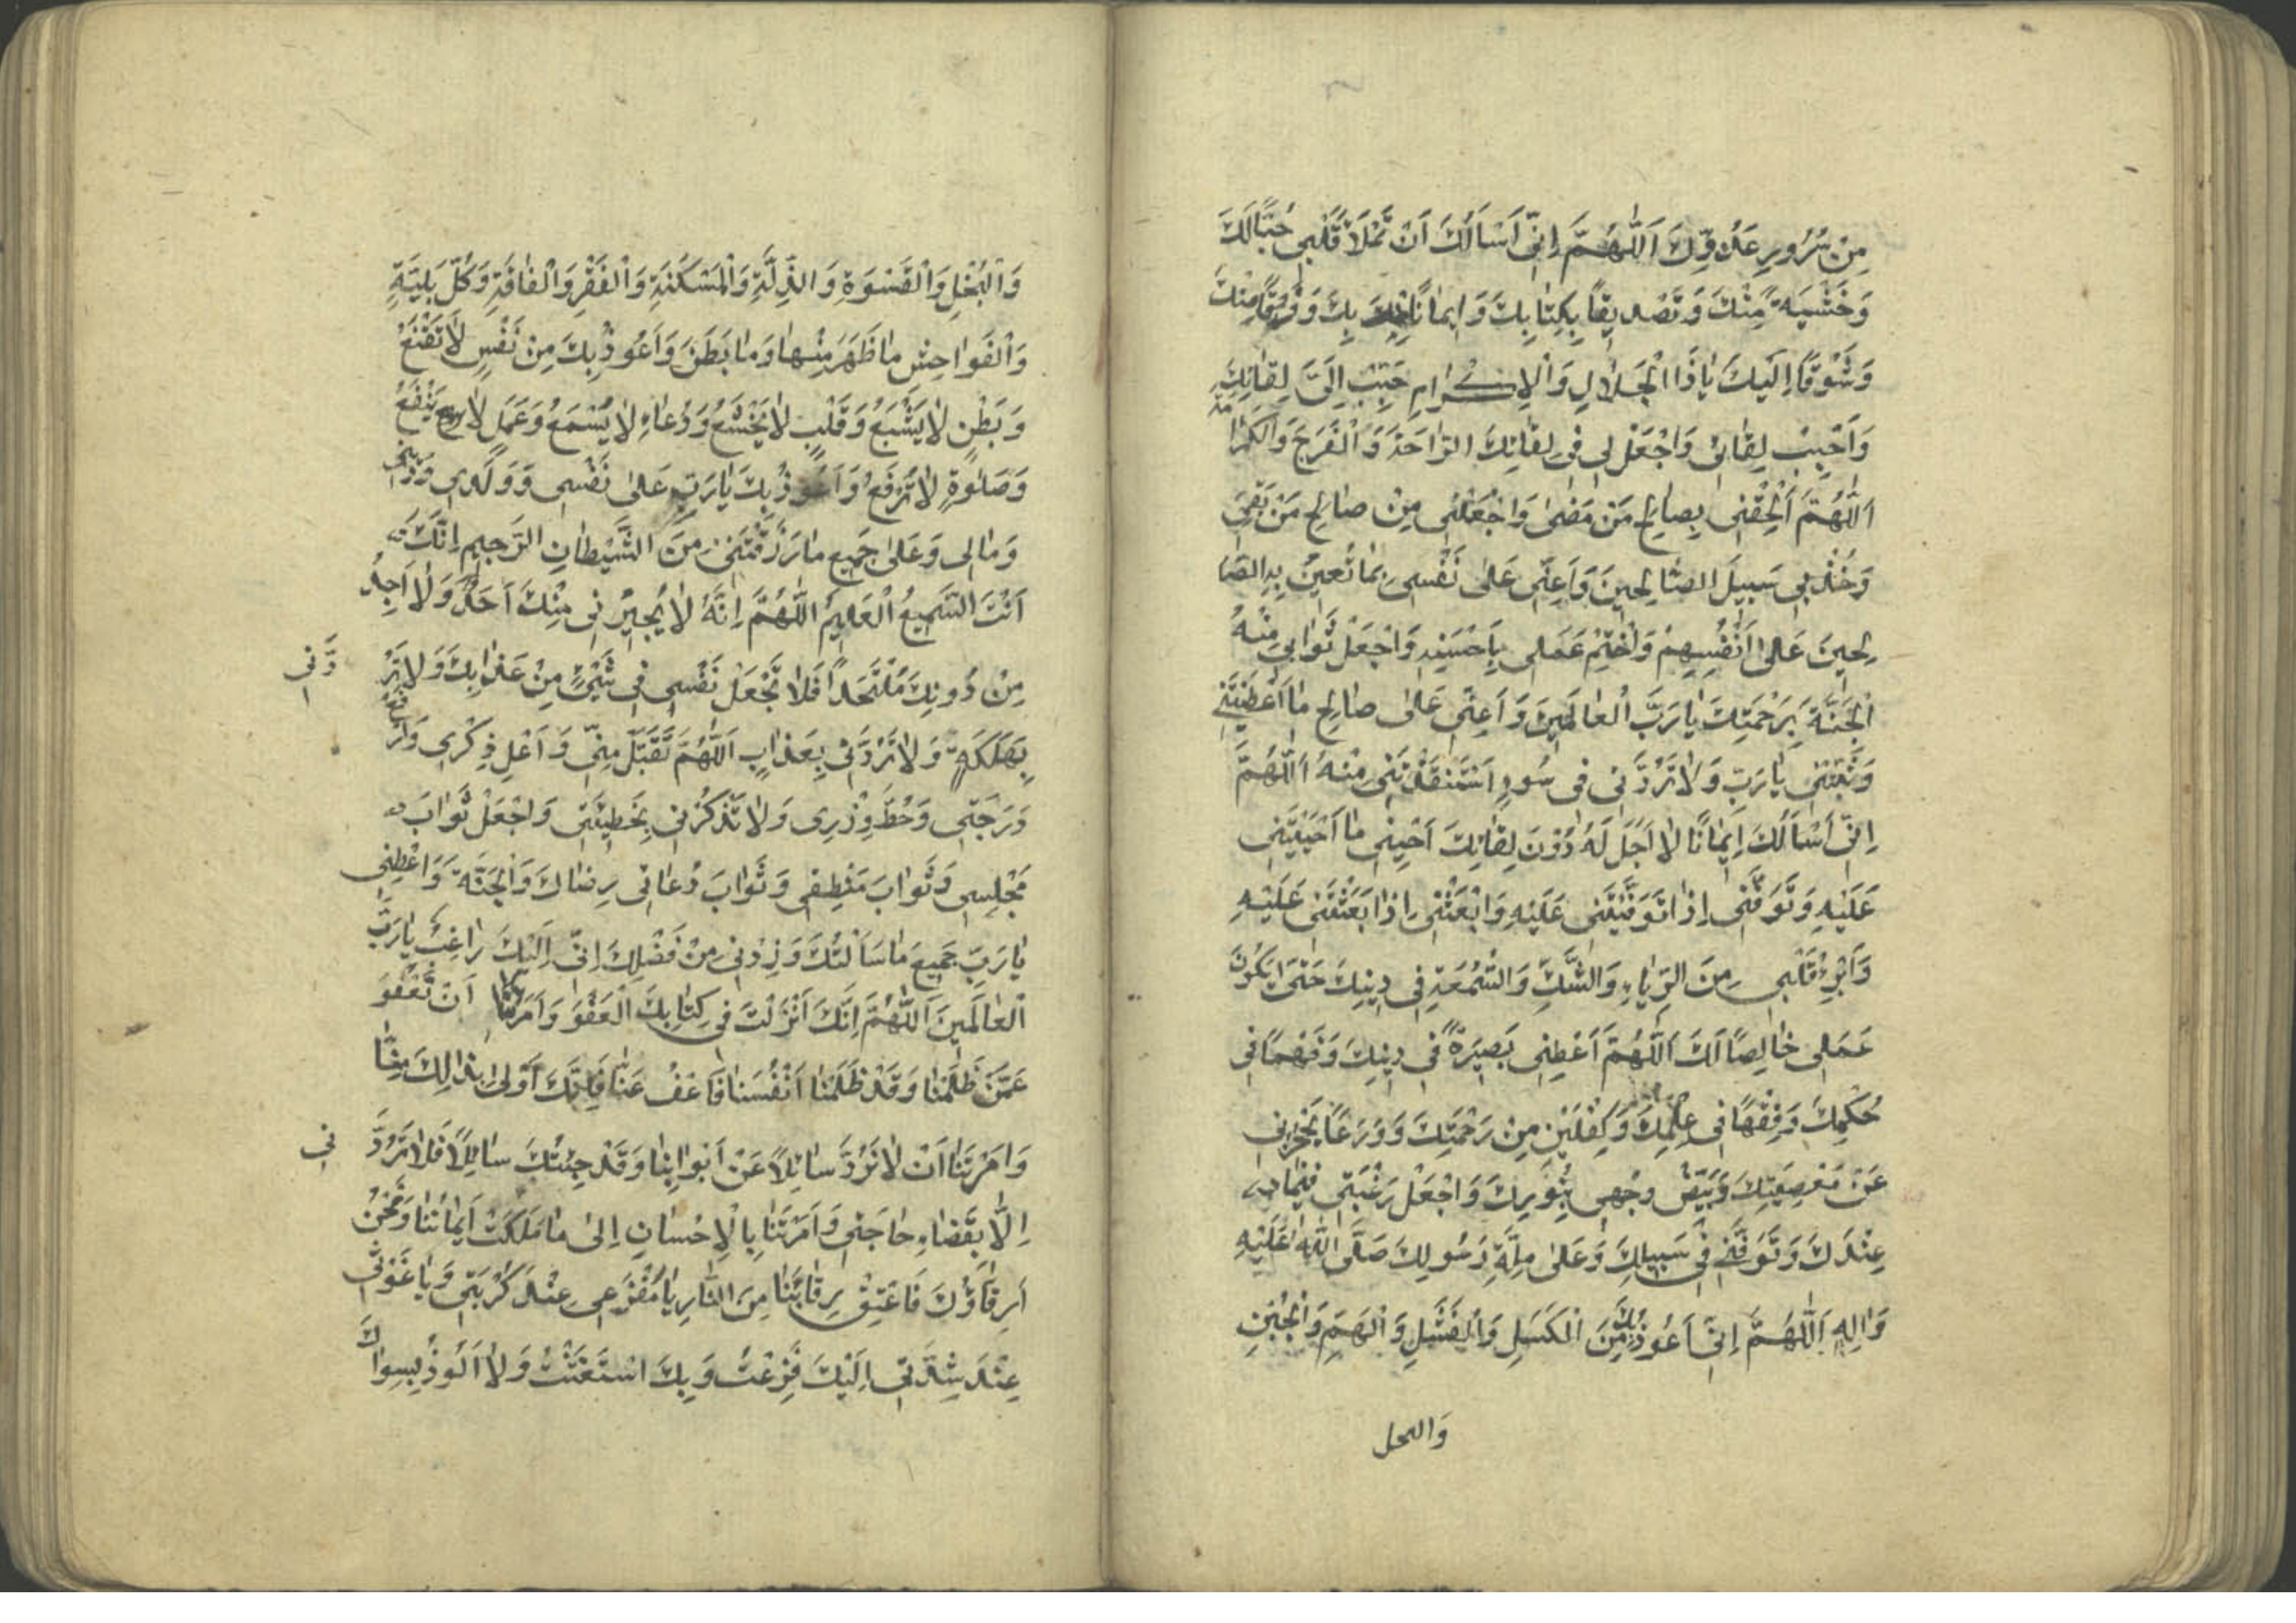 مِنْ سُرُورِ عَدُوِّكَ اَللّٰهُمَّ اِنّى اَسْاَلُكَ اَنْ تَمْلَاَ قَلْبى حُبًّا لَكَ
وَخَشْيَةً مِنْكَ وَتَصْديقًا بِكِتابِكَ وَايمانًا بِكَ وَفَرَقًا مِنْكَ
وَشَوْقًا اِلَيْكَ يا ذَا الْجَلالِ وَالْاِكْرامِ حَبِّبْ اِلَىَّ لِقائَكَ
وَاَحْبِبْ لِقائى وَاجْعَلْ لى فى لِقائِكَ الرّاحَةَ وَالْفَرَجَ وَالْكَرامَة
اَللّٰهُمَّ اَلْحِقْنى بِصالِحِ مَنْ مَضىٰ وَاجْعَلْنى مِنْ صالِحِ مَنْ بَقِىَ
وَخُذْ بى سَبيلَ الصّالِحينَ وَاَعِنّى عَلىٰ نَفْسى بِما تُعينُ بِهِ الصّا
لِحينَ عَلىٰ اَنْفُسِهِمْ وَاخْتِمْ عَمَلى بِاَحْسَنِهِ وَاجْعَلْ ثَوابى مِنْهُ
الْجَنَّةَ بِرَحْمَتِكَ يا رَبَّ الْعالَمينَ وَاَعِنّى عَلىٰ صالِحِ ما اَعْطَيْتَنى
وَثَبِّتْنى يا رَبِّ وَلا تَرُدَّنى فى سُوءٍ اسْتَنْقَذْتَنى مِنْهُ اَللّٰهُمَّ
اِنّى اَسْاَلُكَ ايمانًا لا اَجَلَ لَهُ دُوْنَ لِقائِكَ اَحْيِنى ما اَحْيَيْتَنى
عَلَيْهِ وَتَوَفَّنى اِذا تَوَفَّيْتَنى عَلَيْهِ وَابْعَثْنى اِذا بَعَثْتَنى عَلَيْهِ
وَاَبْرِءْ قَلْبى مِنَ الرِّياءِ وَالشَّكِّ وَالسُّمْعَةِ فى دينِكَ حَتّىٰ يَكُونَ
عَمَلى خالِصًا لَكَ اَللّٰهُمَّ اَعْطِنى بَصيرَةً فى دينِكَ وَفَهْمًا فى
حُكْمِكَ وَفِقْهًا فى عِلْمِكَ وَكِفْلَيْنِ مِنْ رَحْمَتِكَ وَوَرَعًا يَحْجُزُنى
عَنْ مَعْصِيَتِكَ وَبَيِّضْ وَجْهى بِنُورِكَ وَاجْعَلْ رَغْبَتى فيما
عِنْدَكَ وَتَوَفَّنى فى سَبيلِكَ وَعَلىٰ مِلَّةِ رَسُولِكَ صَلَّى اللّٰهُ عَلَيْهِ
وَالِهِ اَللّٰهُمَّ اِنّى اَعُوذُ بِكَ مِنَ الْكَسَلِ وَالْفَشَلِ وَالْهَمِّ وَالْجُبْنِ
وَالبخل
وَالْبُخْلِ وَالْقَسْوَةِ وَالذِّلَّةِ وَالْمَسْكَنَةِ وَالْفَقْرِ وَالْفاقَةِ وَكُلِّ بَلِيَّةٍ
وَالْفَواحِشِ ما ظَهَرَ مِنْها وَما بَطَنَ وَاَعُوذُ بِكَ مِنْ نَفْسٍ لا تَقْنَعُ
وَبَطْنٍ لا يَشْبَعُ وَقَلْبٍ لا يَخْشَعُ وَدُعاءٍ لا يُسْمَعُ وَعَمَلٍ لا يَنْفَعُ
وَصَلوةٍ لا تُرْفَعُ وَاَعُوذُ بِكَ يا رَبِّ عَلىٰ نَفْسى وَوَلَدى وَدينى
وَمالى وَعَلىٰ جَميعِ ما رَزَقْتَنى مِنَ الشَّيْطانِ الرَّجيمِ اِنَّكَ
اَنْتَ السَّميعُ الْعَليمُ اَللّٰهُمَّ اِنَّهُ لا يُجيرُنى مِنْكَ اَحَدٌ وَلا اَجِدُ
مِنْ دُونِكَ مُلْتَحَدًا فَلا تَجْعَلْ نَفْسى فى شَىْءٍ مِنْ عَذابِكَ وَلا تَرُ دَّنى
بِهَلَكَةٍ وَلا تَرُدَّنى بِعَذابٍ اَللّٰهُمَّ تَقَبَّلْ مِنّى وَاَعْلِ ذِكْرى وَارْفَعْ
دَرَجَتى وَحُطَّ وِزْرى وَلا تَذْكُرْنى بِخَطيئَتى وَاجْعَلْ ثَوابَ
مَجْلِسى وَثَوابَ مَنْطِقى وَثَوابَ دُعائى رِضاكَ وَالْجَنَّةَ وَاَعْطِنى
يا رَبِّ جَميعَ ما سَاَلْتُكَ وَزِدْنى مِنْ فَضْلِكَ اِنّى اِلَيْكَ راغِبٌ يا رَبَّ
الْعالَمينَ اَللّٰهُمَّ اِنَّكَ اَنْزَلْتَ فى كِتابِكَ الْعَفْوَ وَاَمَرْتَنا اَنْ نَعْفُوَ
عَمَّنْ ظَلَمَنا وَقَدْ ظَلَمْنا اَنْفُسَنا فَاعْفُ عَنّا فَاِنَّكَ اَوْلىٰ بِذالِكَ مِنّا
وَاَمَرْتَنا اَنْ لا نَرُدَّ سائِلًا عَنْ اَبْوابِنا وَقَدْ جِئْتُكَ سائِلًا فَلا تَرُدَّ نى
اِلّا بِقَضاءِ حاجَتى وَاَمَرْتَنا بِالْاِحْسانِ اِلىٰ ما مَلَكَتْ اَيْمانُنا وَنَحْنُ
اَرِقّاؤُكَ فَاَعْتِقْ رِقابَنا مِنَ النّارِ يا مَفْزَعى عِنْدَ كُرْبَتى وَيا غَوْثى
عِنْدَ شِدَّتى اِلَيْكَ فَزِعْتُ وَبِكَ اسْتَغَثْتُ وَلا اَلُوذُ بِسِواكَ